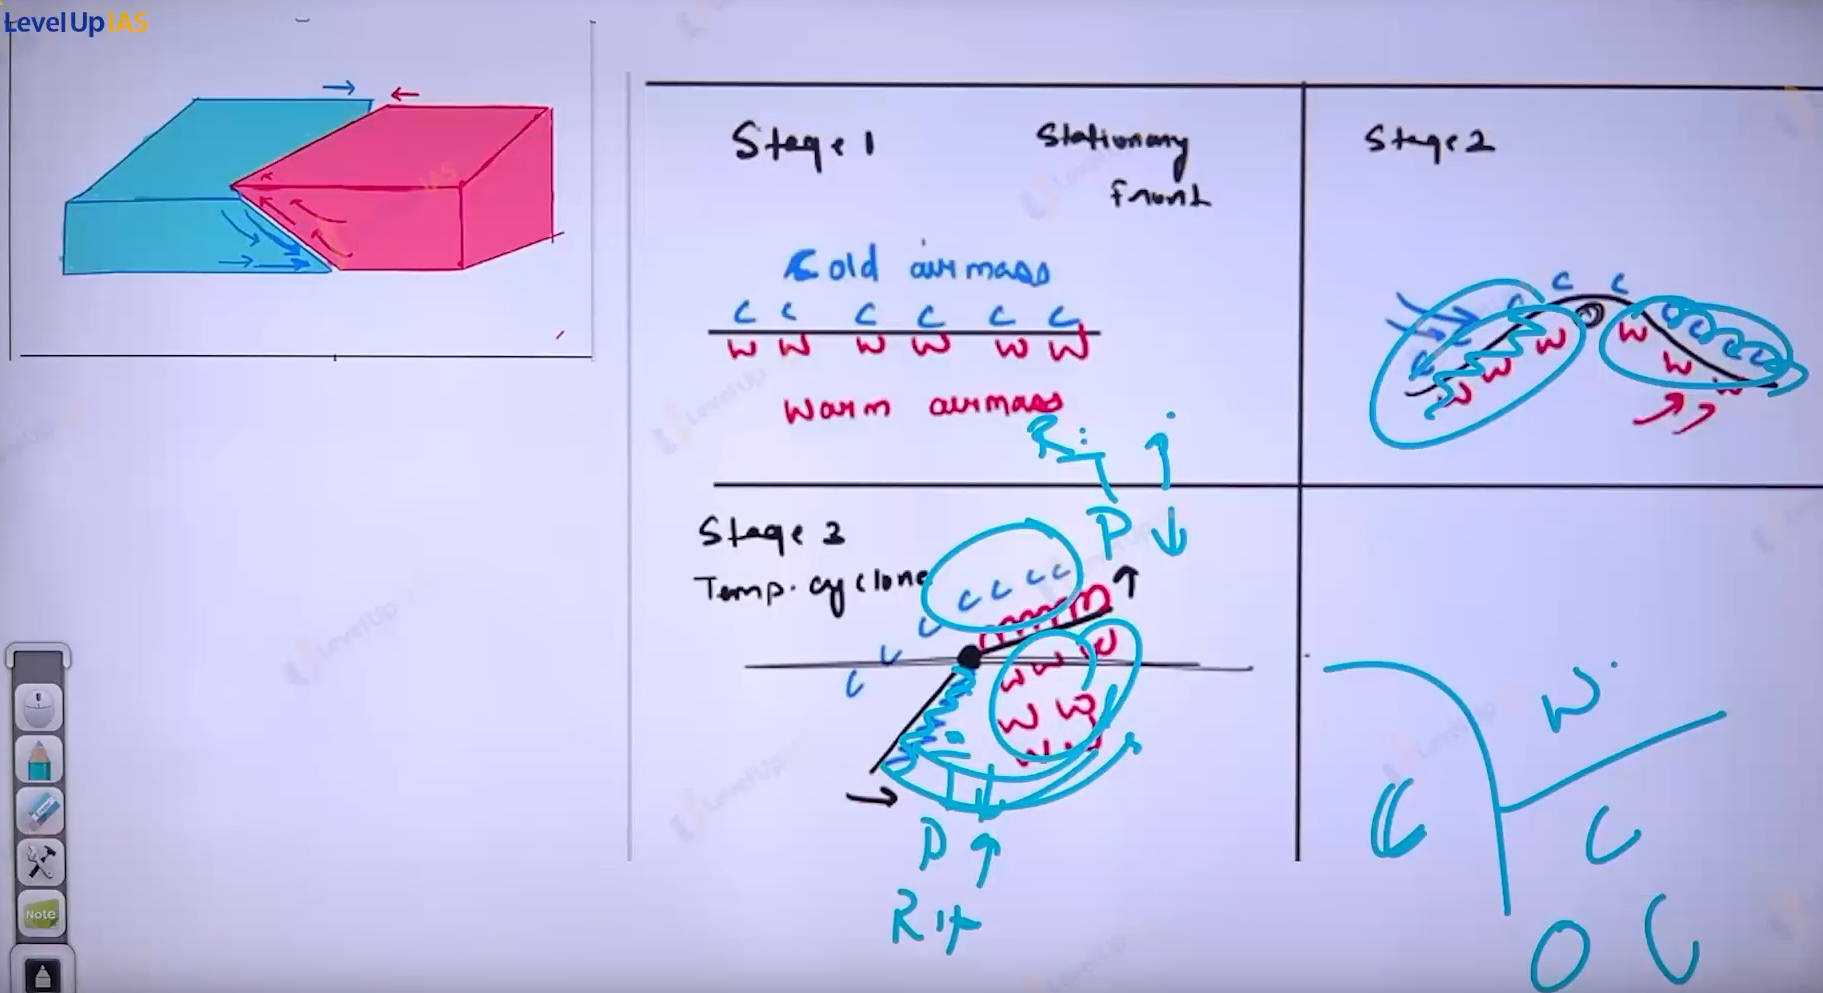 LevelUp IAS
Stage 1
Stationary
front
Cold airmass
C C C C C C
W W W W W W
Warm airmass
Stage 2
C C C
W W W
W W W
Stage 3
Temp. cyclone
C C C C
C
C
C
W W W
W W
W W
P ↓
P ↑
W
C
C
O C
Note